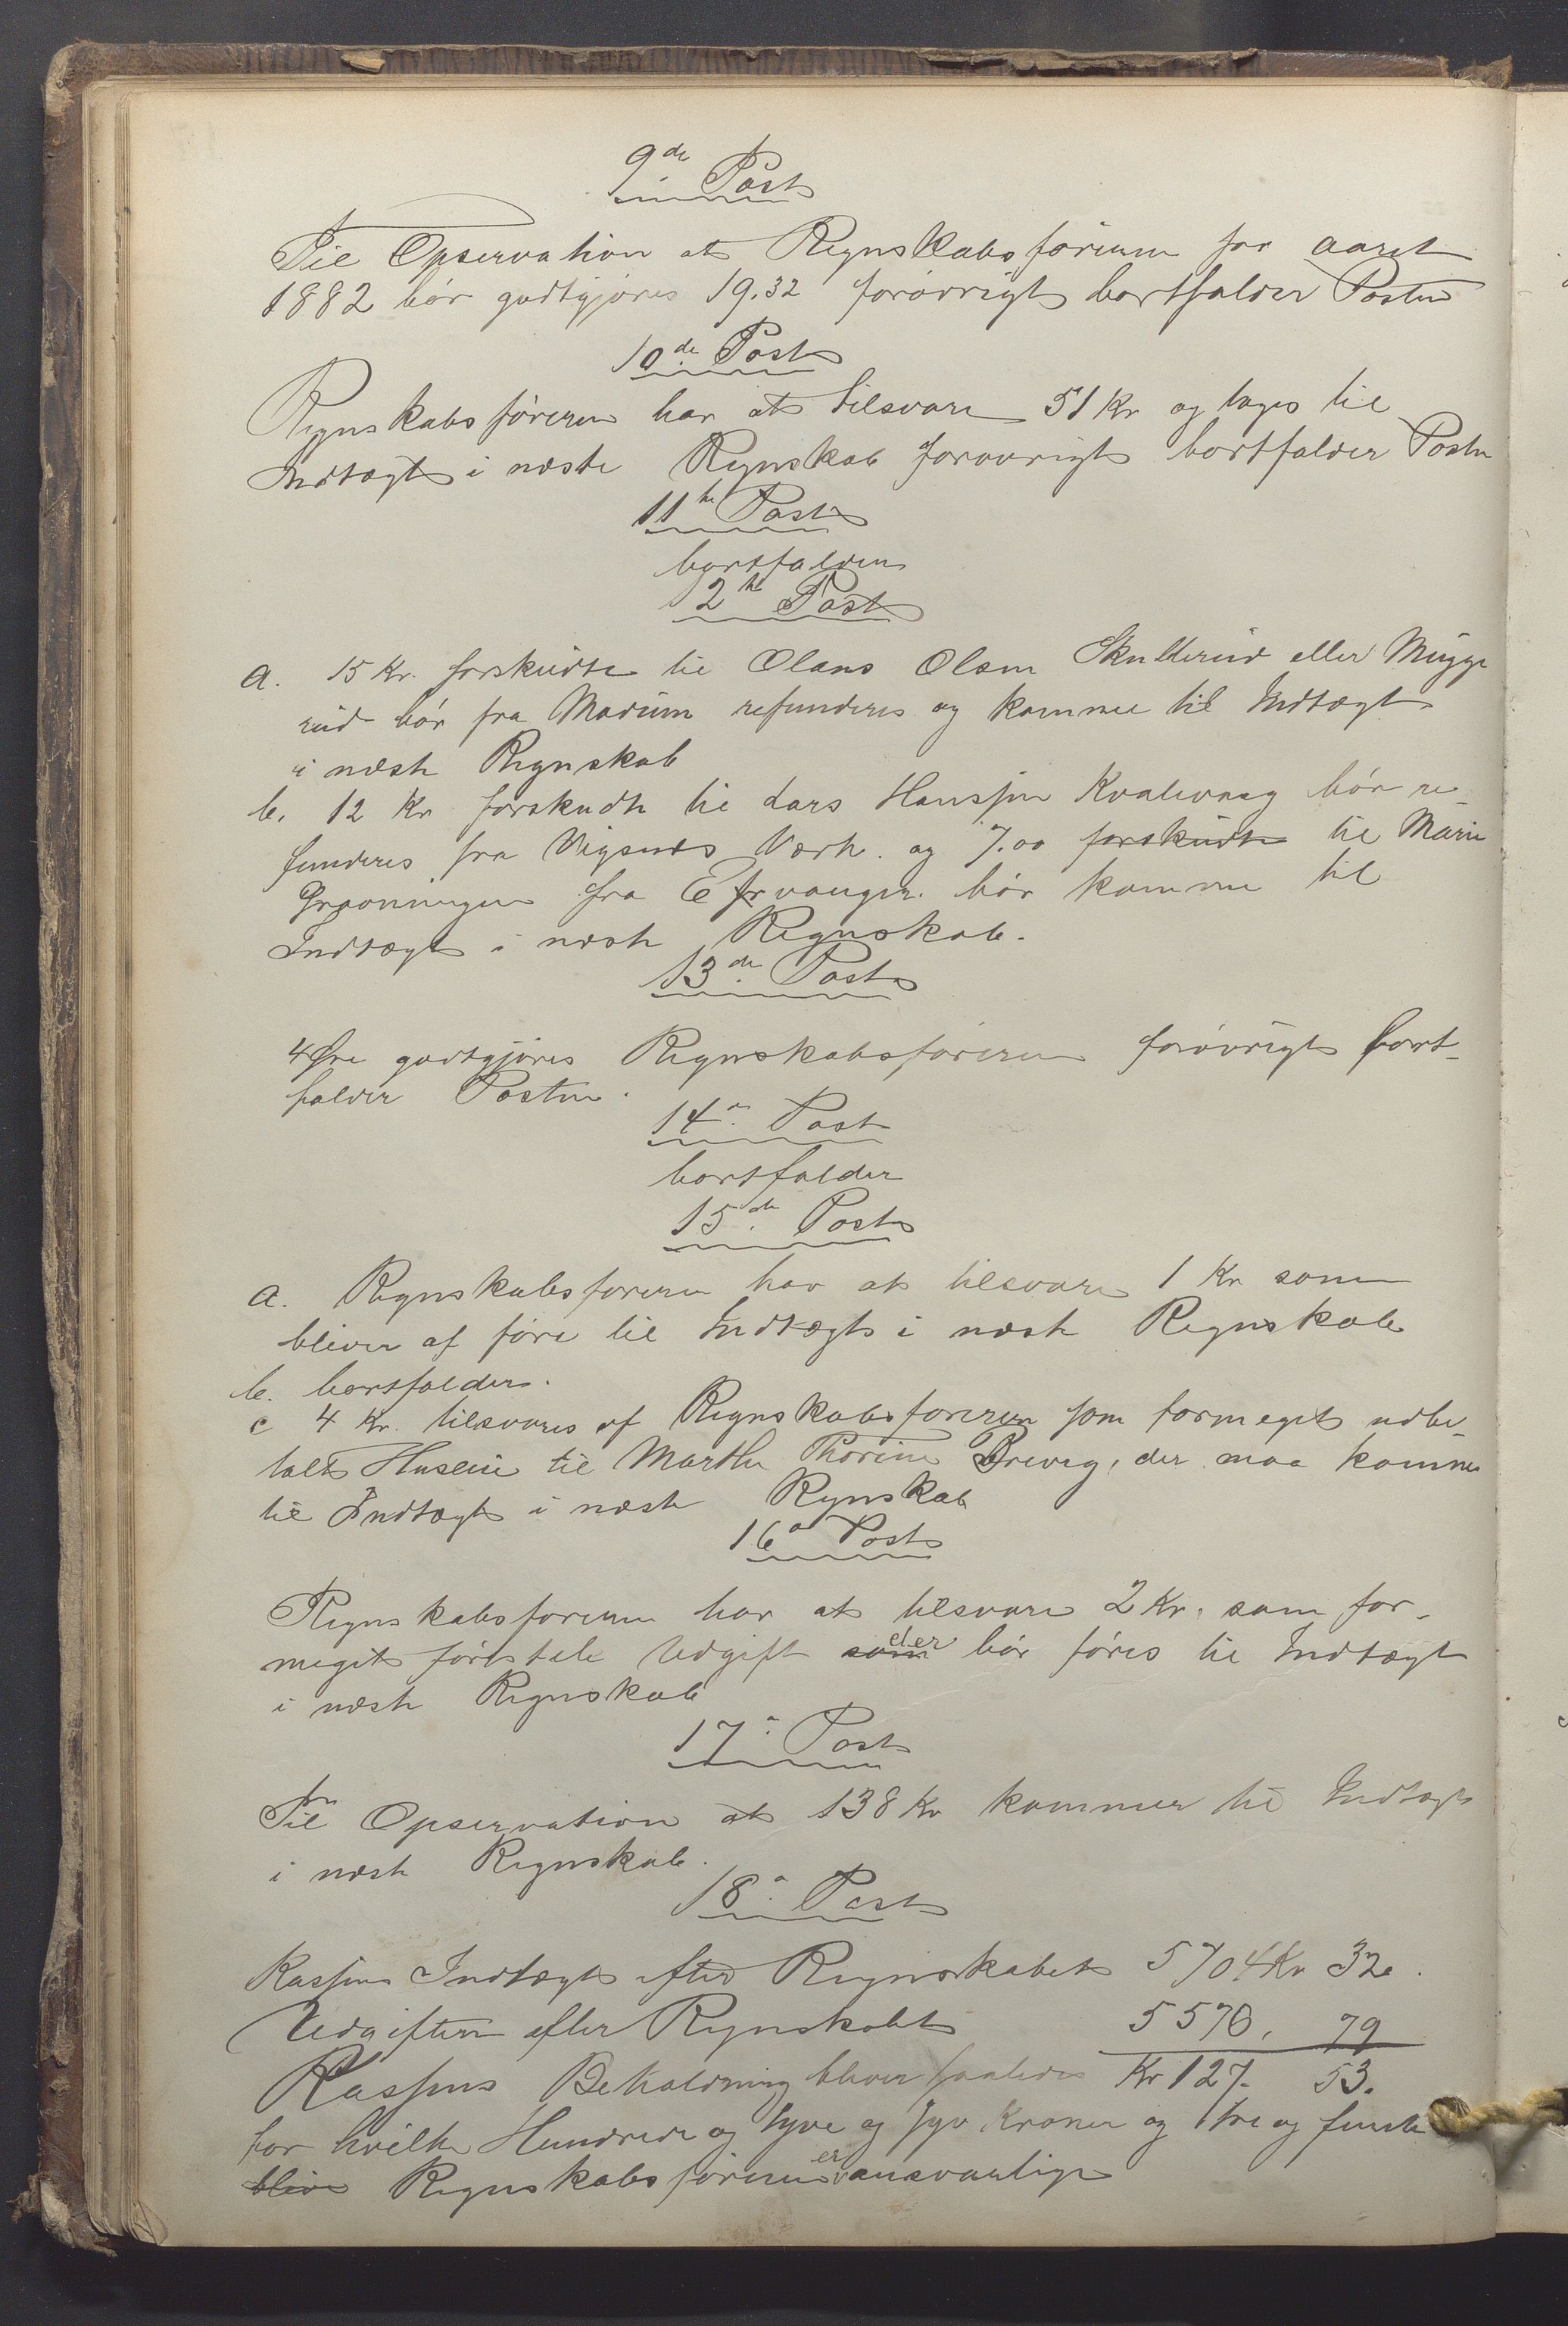 9de Post
Til Opservation at Regnskabsføreren for aaret
1882 bør godtgjøres 19.32 forøvrigt bortfalder Posten
10de Post
Regnskabsføreren har at tilsvare 51 Kr og tages til
Indtægt i næste Regnskab forøvrigt bortfalder Posten
11te Post
bortfalder
12te Post
a. 15 Kr. forskudte til Olaus Olsen Skutterud eller Mugge
rud bør fra Modum refunderes og komme til Indtægt
i næste Regnskab
b. 12 Kr forskudte til Lars Hansen Kvalevaag bør re-
funderes fra Vigsnes Værk. og 7.00 forskudte til Marie
Grønningen fra bør komme til
Indtægt i næste Regnskab.
13de Post
4 Øre godtgjøres Regnskabsføreren forøvrigt bort-
falder Posten.
14de Post
bortfalder
15de Post
a. Regnskabsføreren har at tilsvare 1 Kr som
bliver at føre til Indtægt i næste Regnskab
b. bortfalder.
c 4 Kr. tilsvares af Regnskabsføreren som formeget udbe-
talt Husleie til Marthe Thorine Drevag, der maa komme
til Indtægt i næste Regnskab
16de Post
Regnskabsføreren har at tilsvare 2 Kr. som for-
meget ført til Udgift som der bør føres til Indtægt
i næste Regnskab
17de Post
Til Opservation at 138 Kr kommer til Indtægt
i næste Regnskab.
18de Post
Kassens Indtægt efter Regnskabet 5704 Kr 32.
Udgiften efter Regnskabet 5576. 79
Kassens Beholdning bliver saaledes Kr 127. 53.
for hvilke Hundrede og tyve og syv Kroner og tre og femti
blive Regnskabsføreren er ansvarlige